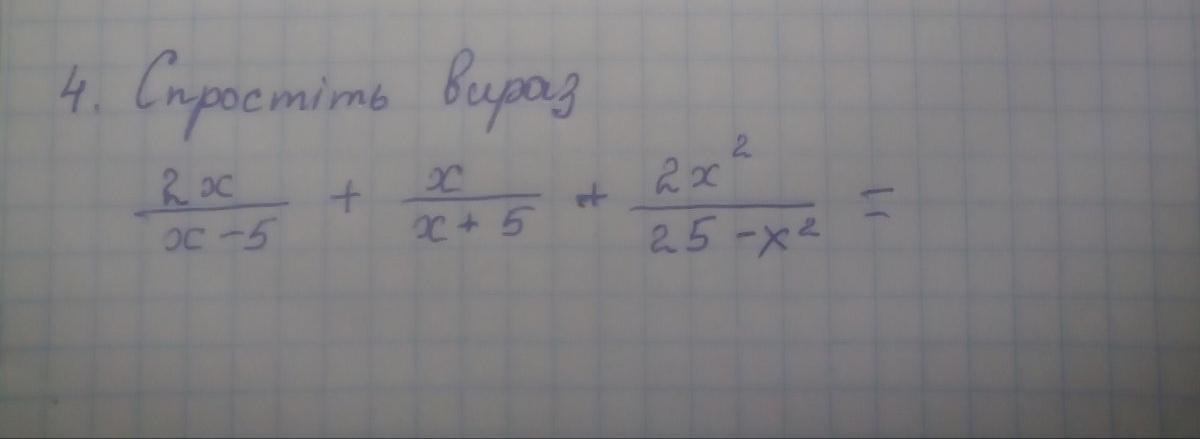 4. Спростіть вираз
2x/(x-5) + x/(x+5) + 2x²/(25-x²) =